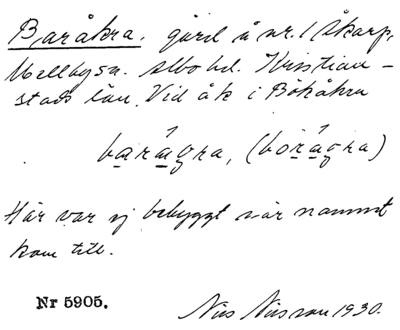 Baråkra. gård å nr. 1 Åkarp,
Mellbysn. Albo hd. Kristian-
stads län. Vid åk i Bökåkra
barágra, (borágra)
Här var ej bebyggt när namnet
kom till.
Nr 5905.
Nils Nilsson 1930.